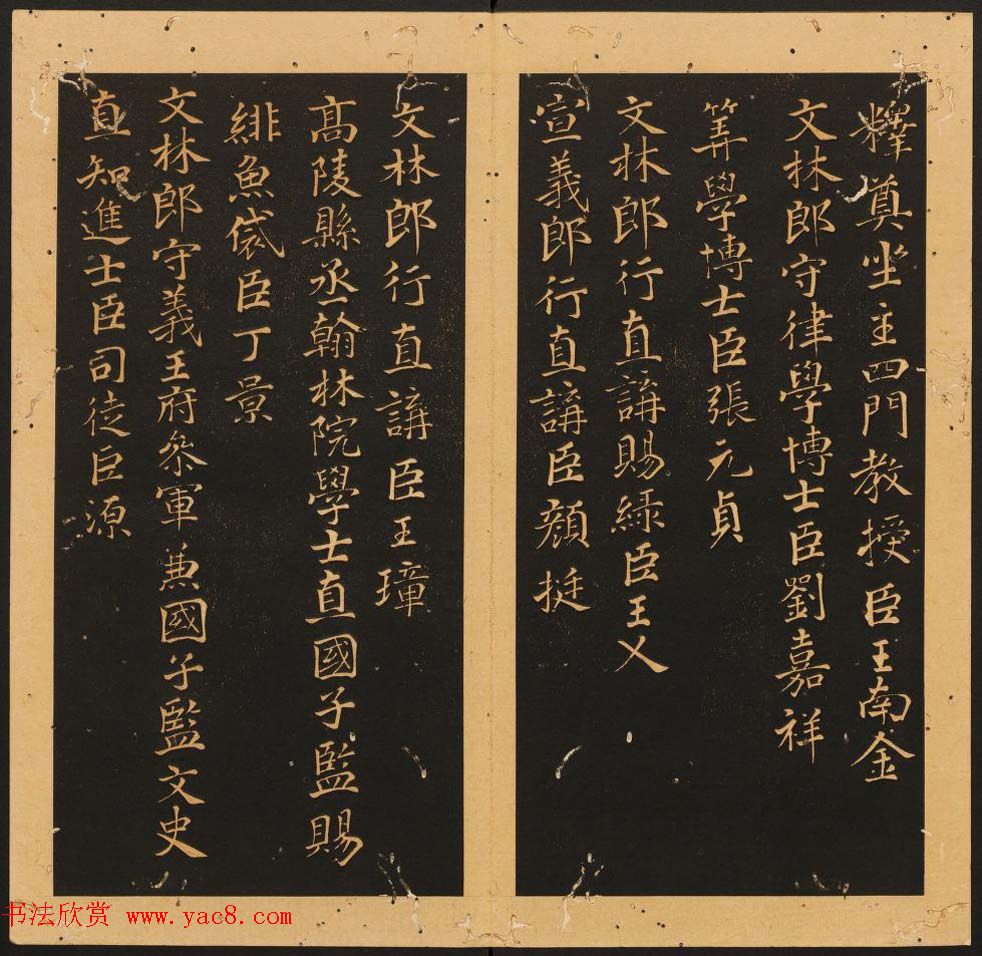 釋奠坐主四門教授臣王南金
文林郎守律學博士臣劉嘉祥
筭學博士臣張元貞
文林郎行直講賜綠臣王乂
宣義郎行直講臣顏挺
文林郎行直講臣王璋
髙陵縣丞翰林院學士直國子監賜
緋魚袋臣丁景
文林郎守義王府叅軍兼國子監文史
直知進士臣司徒臣源
书法欣赏 www.yac8.com